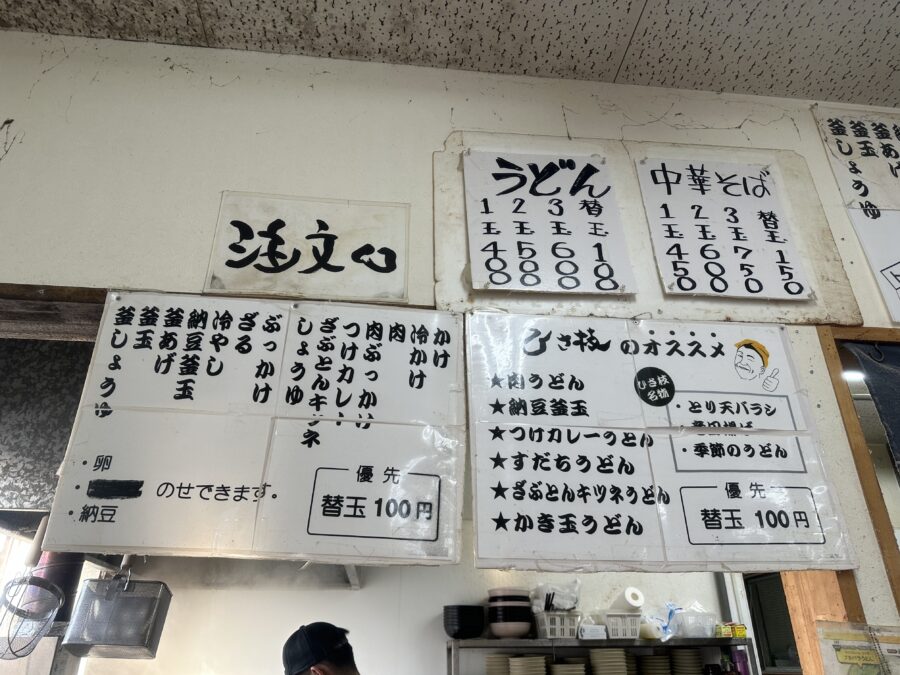 注文口
うどん
1玉400
2玉500
3玉600
替玉100
中華そば
1玉450
2玉600
3玉750
替玉150
かけ
冷かけ
肉
肉ぶっかけ
つけカレー
ざぶとんキツネ
しょうゆ
ぶっかけ
ざる
冷やし
納豆釜玉
釜あげ
釜玉
釜しょうゆ
・卵
・
・納豆
のせできます。
優先
替玉100円
ひさ枝のオススメ
★肉うどん
★納豆釜玉
★つけカレーうどん
★すだちうどん
★ざぶとんキツネうどん
★かき玉うどん
ひさ枝
名物
・とり天バラシ
・季節のうどん
優先
替玉100円
釜あげ
釜玉
釜しょうゆ